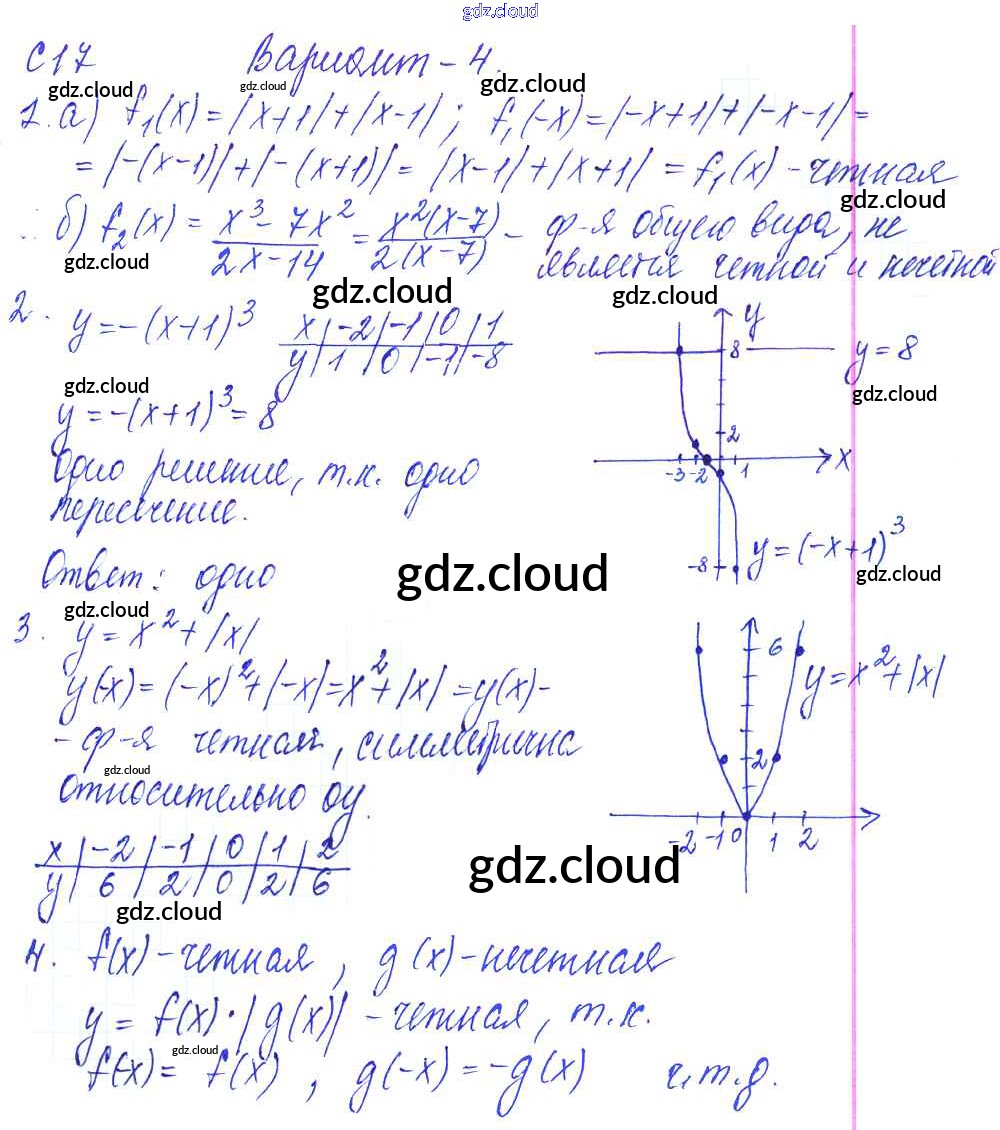 gdz.cloud
С17 Вариант - 4.
gdz.cloud gdz.cloud gdz.cloud
1. а) f₁(x) = |x+1| + |x-1| ; f₁(-x) = |-x+1| + |-x-1| =
= |-(x-1)| + |-(x+1)| = |x-1| + |x+1| = f₁(x) - четная
gdz.cloud
б) f₂(x) = (x³ - 7x²)/(2x - 14) = x²(x-7)/2(x-7) - ф-я общего вида, не
является четной и нечетной
gdz.cloud
gdz.cloud gdz.cloud
2. y = -(x+1)³
x | -2 | -1 | 0 | 1
y | 1 | 0 | -1 | -8
gdz.cloud
y = -(x+1)³ = 8
Одно решение, т.к. одно
пересечение.
Ответ: одно
y
8 y = 8
gdz.cloud
2
-3 -2 1 x
-8 y = (-x+1)³
gdz.cloud gdz.cloud
gdz.cloud
3. y = x² + |x|
y(-x) = (-x)² + |-x| = x² + |x| = y(x) -
- ф-я четная, симметрична
gdz.cloud
относительно oy.
x | -2 | -1 | 0 | 1 | 2
y | 6 | 2 | 0 | 2 | 6
6 y = x² + |x|
2
-2 -1 0 1 2
gdz.cloud
gdz.cloud
4. f(x) - четная, g(x) - нечетная
y = f(x) · |g(x)| - четная, т.к.
gdz.cloud
f(-x) = f(x), g(-x) = -g(x) ч.т.д.